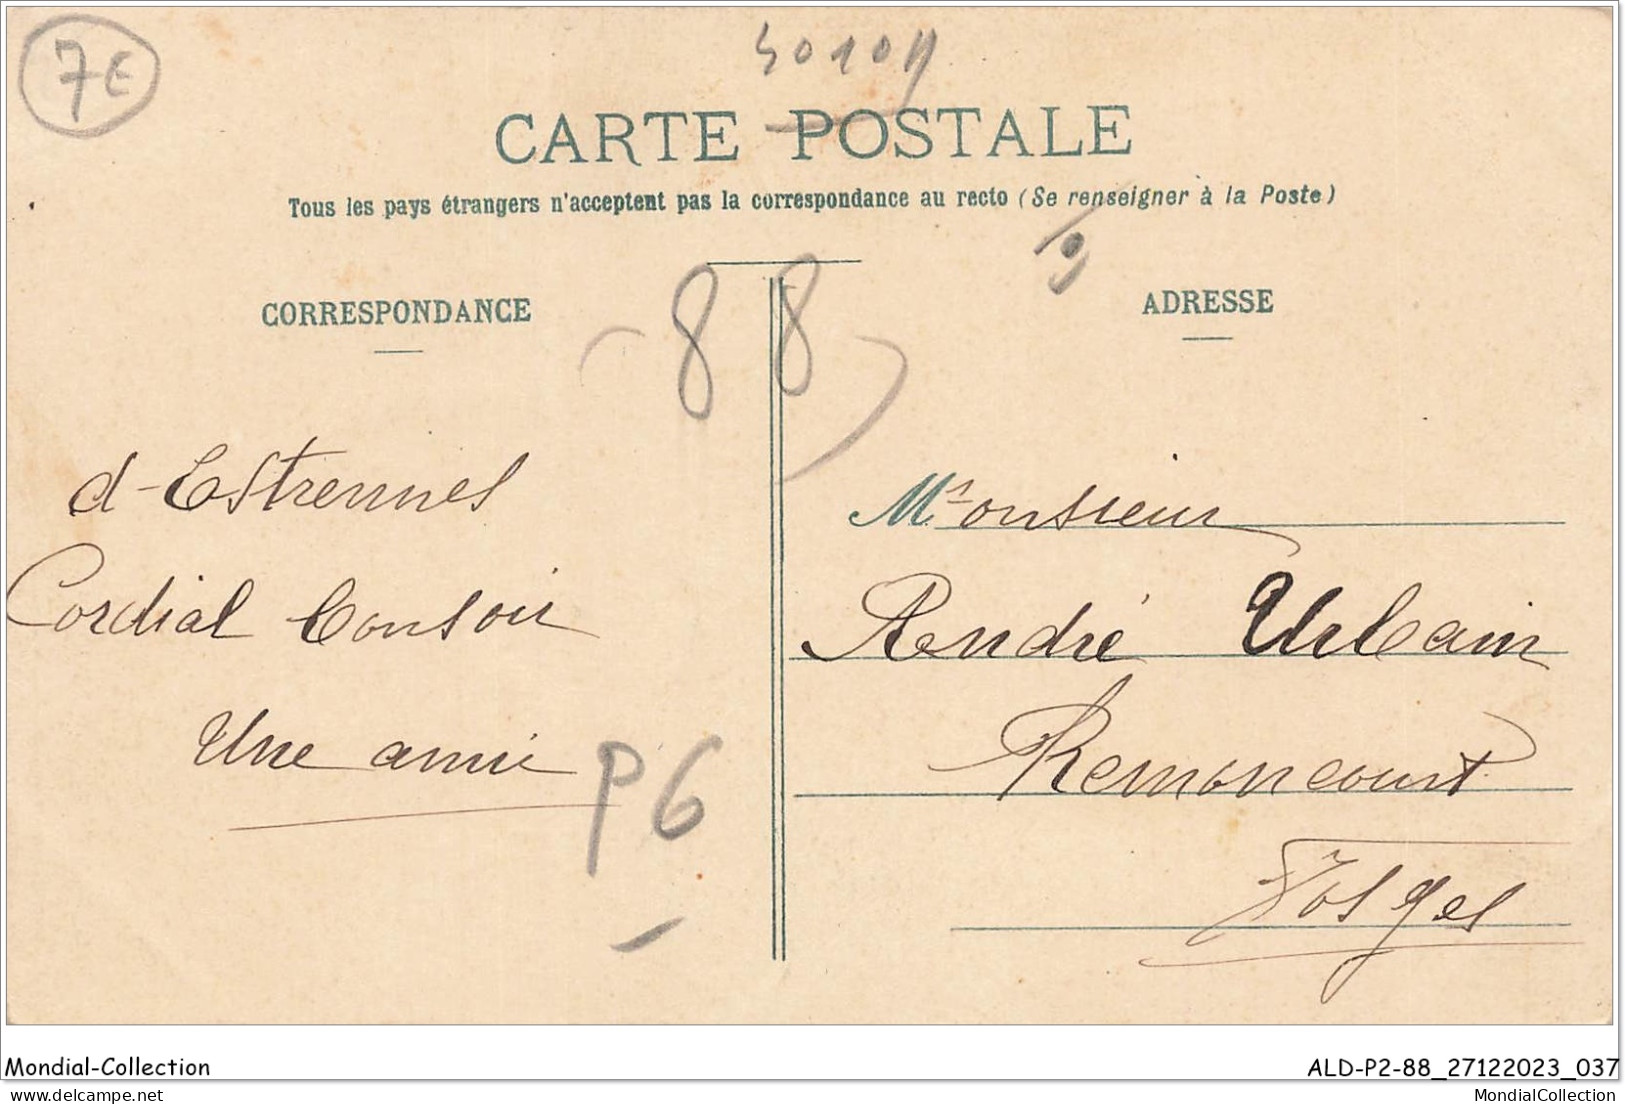 7E
CARTE POSTALE
Tous les pays étrangers n'acceptent pas la correspondance au recto (Se renseigner à la Poste)
CORRESPONDANCE
d-Estrennes
Cordial bonsoir
Une amie
88
P6
ADRESSE
M. onsieur
André Urbain
Remoncourt
Vosges
Mondial-Collection
ALD-P2-88_27122023_037
MondialCollection